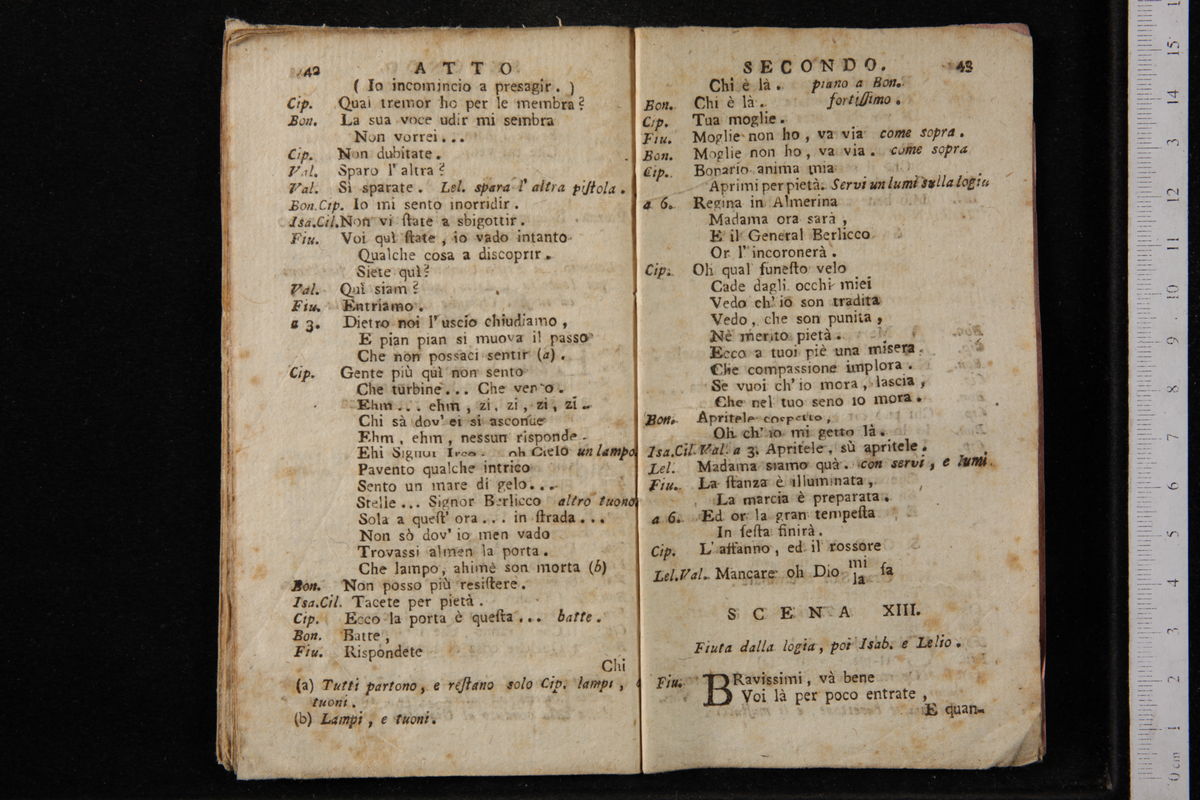 42 ATTO
( Io incomincio a presagir. )
Cip. Qual tremor ho per le membra?
Bon. La sua voce udir mi sembra
Non vorrei...
Cip. Non dubitate.
Val. Sparo l'altra?
Val. Sì sparate. Lel. spara l'altra piſtola.
Bon.Cip. Io mi sento inorridir.
Isa.Cil. Non vi ſtate a sbigottir.
Fiu. Voi quì ſtate, io vado intanto
Qualche cosa a discoprir.
Siete quì?
Val. Quì siam?
Fiu. Entriamo.
a 3. Dietro noi l'uscio chiudiamo,
E pian pian si muova il passo
Che non possaci sentir (a).
Cip. Gente più quì non sento
Che turbine... Che vento.
Ehm... ehm, zi, zi, zi, zi..
Chi sà dov' ei si asconde
Ehm, ehm, nessun risponde.
Ehi Signor oh Cielo un lampo
Pavento qualche intrico
Sento un mare di gelo...
Stelle... Signor Berlicco altro tuono
Sola a queſt' ora... in ſtrada...
Non sò dov' io men vado
Trovassi almen la porta.
Che lampo, ahimè son morta (b)
Bon. Non posso più resiſtere.
Isa.Cil. Tacete per pietà.
Cip. Ecco la porta è queſta... batte.
Bon. Batte,
Fiu. Rispondete
Chi
(a) Tutti partono, e reſtano solo Cip. lampi,
tuoni.
(b) Lampi, e tuoni.
SECONDO. 43
Chi è là. piano a Bon.
Bon. Chi è là. fortiſſimo.
Cip. Tua moglie.
Fiu. Moglie non ho, va via come sopra.
Bon. Moglie non ho, va via. come sopra
Cip. Bonario anima mia
Aprimi per pietà. Servi un lumi sulla logia
a 6. Regina in Almerina
Madama ora sarà,
E il General Berlicco
Or l'incoronerà.
Cip. Oh qual funeſto velo
Cade dagli occhi miei
Vedo ch' io son tradita
Vedo, che son punita,
Nè merito pietà.
Ecco a tuoi piè una misera.
Che compassione implora.
Se vuoi ch' io mora, lascia,
Che nel tuo seno io mora.
Bon. Apritele cospetto,
Oh ch' io mi getto là.
Isa.Cil.Val. a 3. Apritele, sù apritele.
Lel. Madama siamo quà. con servi, e lumi.
Fiu. La ſtanza è illuminata,
La marcia è preparata.
a 6. Ed or la gran tempeſta
In feſta finirà.
Cip. L'affanno, ed il rossore
Lel.Val. Mancare oh Dio mi fa
la
SCENA XIII.
Fiuta dalla logia, poi Isab. e Lelio.
Fiu. BRavissimi, và bene
Voi là per poco entrate,
E quan-
15
14
13
12
11
10
9
8
7
6
5
4
3
2
1
0 cm